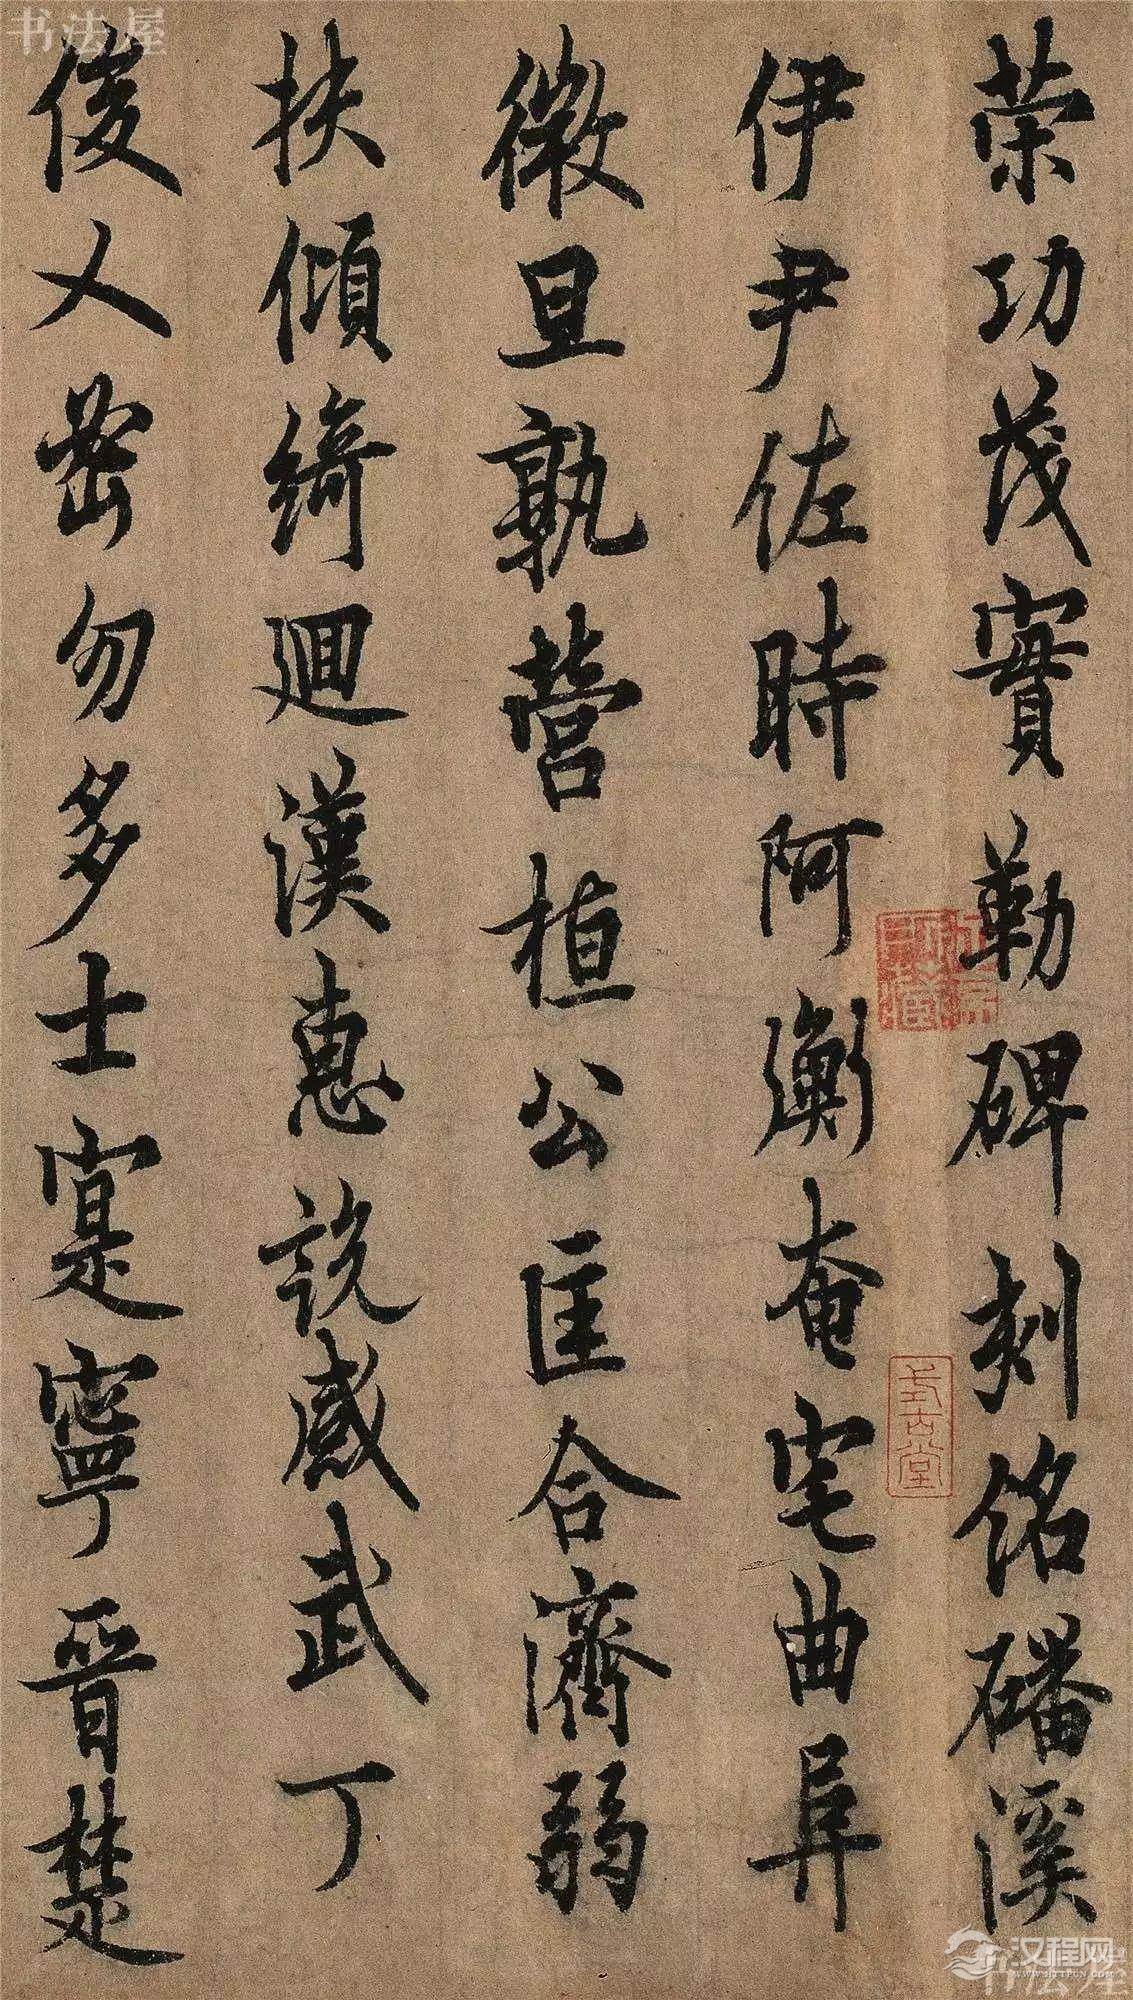 荣功茂實勒碑刻銘磻溪
伊尹佐時阿衡奄宅曲阜
微旦孰營桓公匡合濟弱
扶傾綺迴漢惠說感武丁
俊乂密勿多士寔寧晉楚
式古堂
书法屋
汉程网
WWW.HTTPCN.COM
书法屋